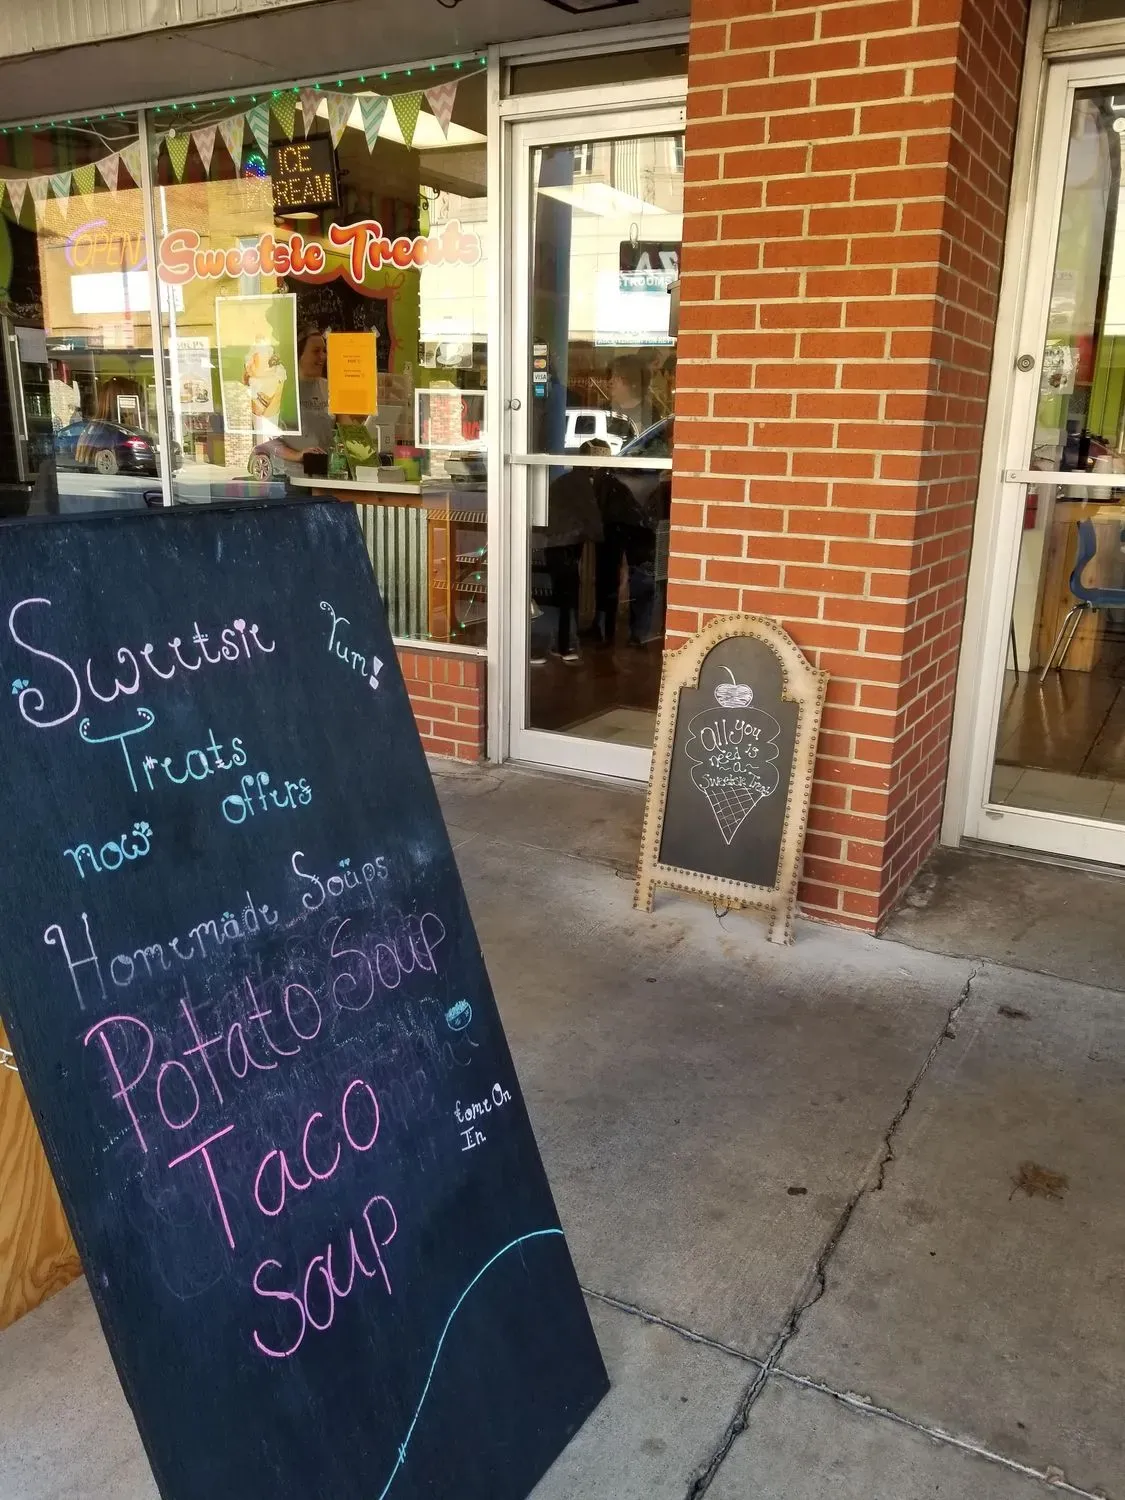 ICE
CREAM
OPEN
Sweetsie Treats
VISA
Sweetsie
Yum!
Treats
offers
now
Homemade Soups
Potato Soup
Taco
Soup
Come On
In
all you
need is
a
Sweetsie Treat